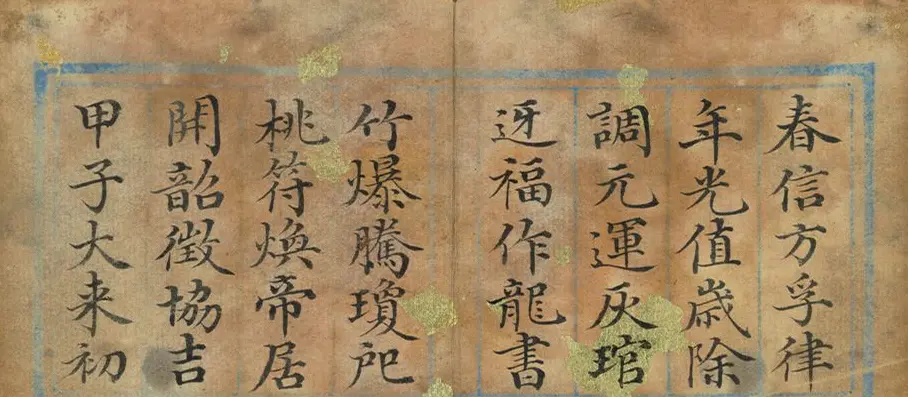 春信方孚律
年光值歲除
調元運灰琯
迓福作龍書
竹爆騰瓊戺
桃符煥帝居
開韶徵協吉
甲子大来初